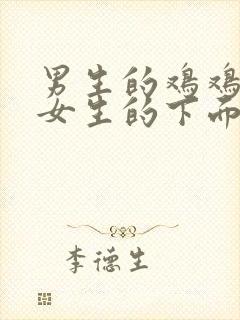 男生的鸡鸡
女生的下面
李德生